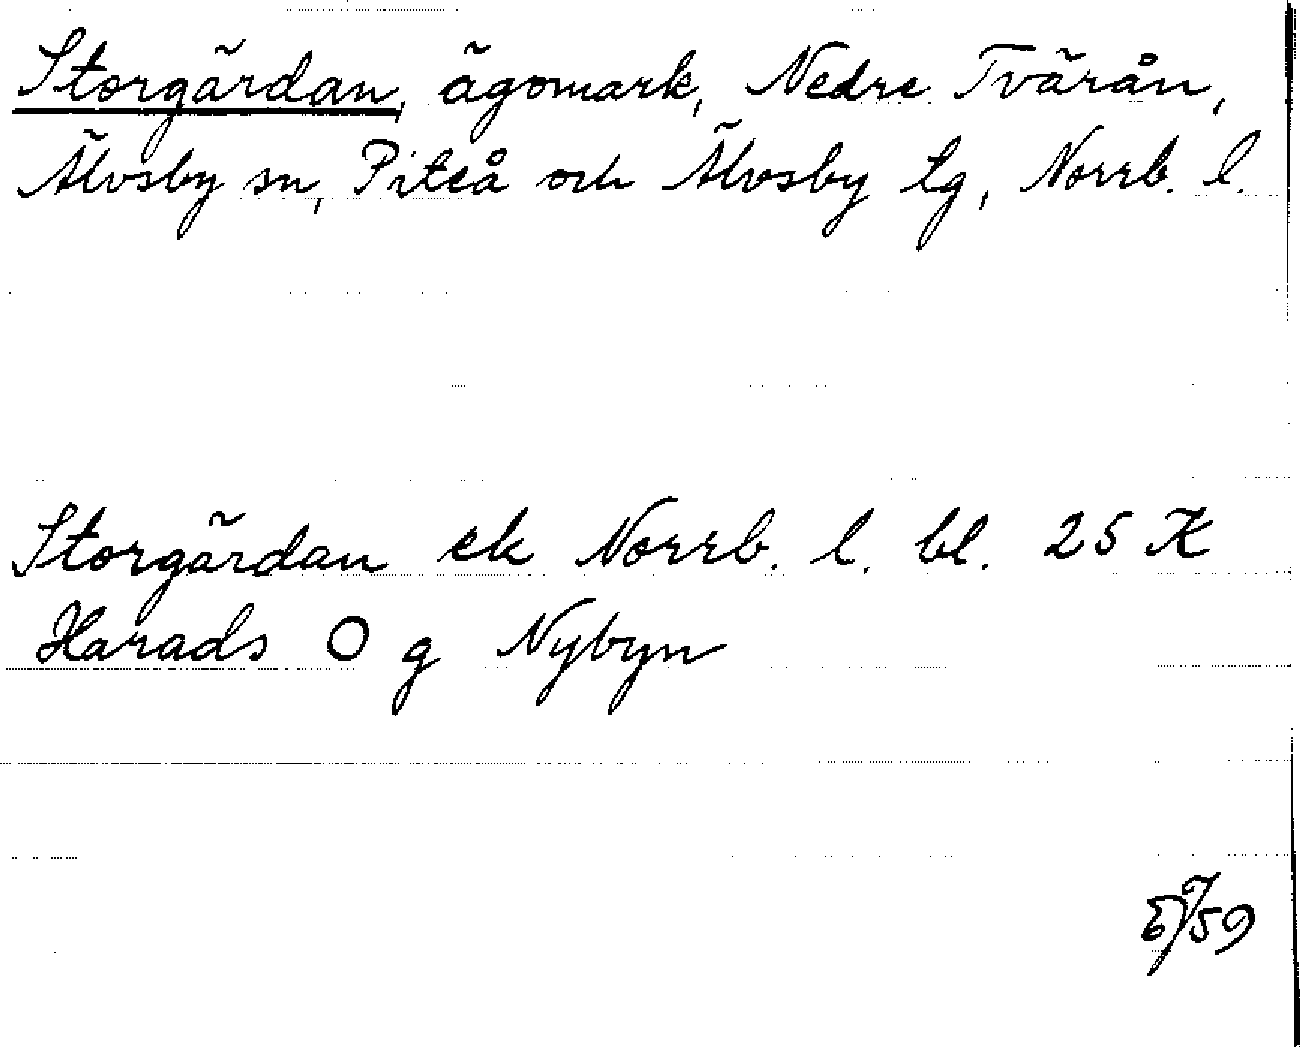 Storgärdan, ägomark, Nedre Tvärån,
Älvsby sn, Piteå och Älvsby tg, Norrb. l.
Storgärdan ek Norrb. l. bl. 25 K
Harads O g Nybyn
/59